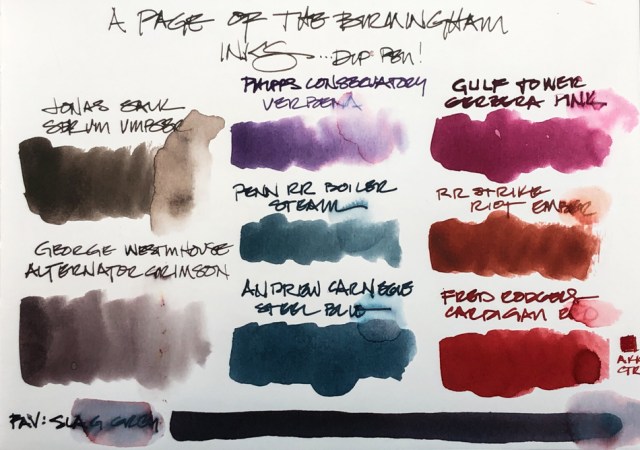 A PAGE OF THE BIRMINGHAM
INKS...DIP PEN!
JONAS SALK
SERUM UMBER
PHIPPS CONSERVATORY
VERBENA
GULF TOWER
GERBERA PINK
PENN RR BOILER
STEAM
RR STRIKE
RIOT EMBER
GEORGE WESTINHOUSE
ALTERNATOR CRIMSON
ANDREW CARNEGIE
STEEL BLUE
FRED RODGERS
CARDIGAN RED
FAV: SLAG GREY